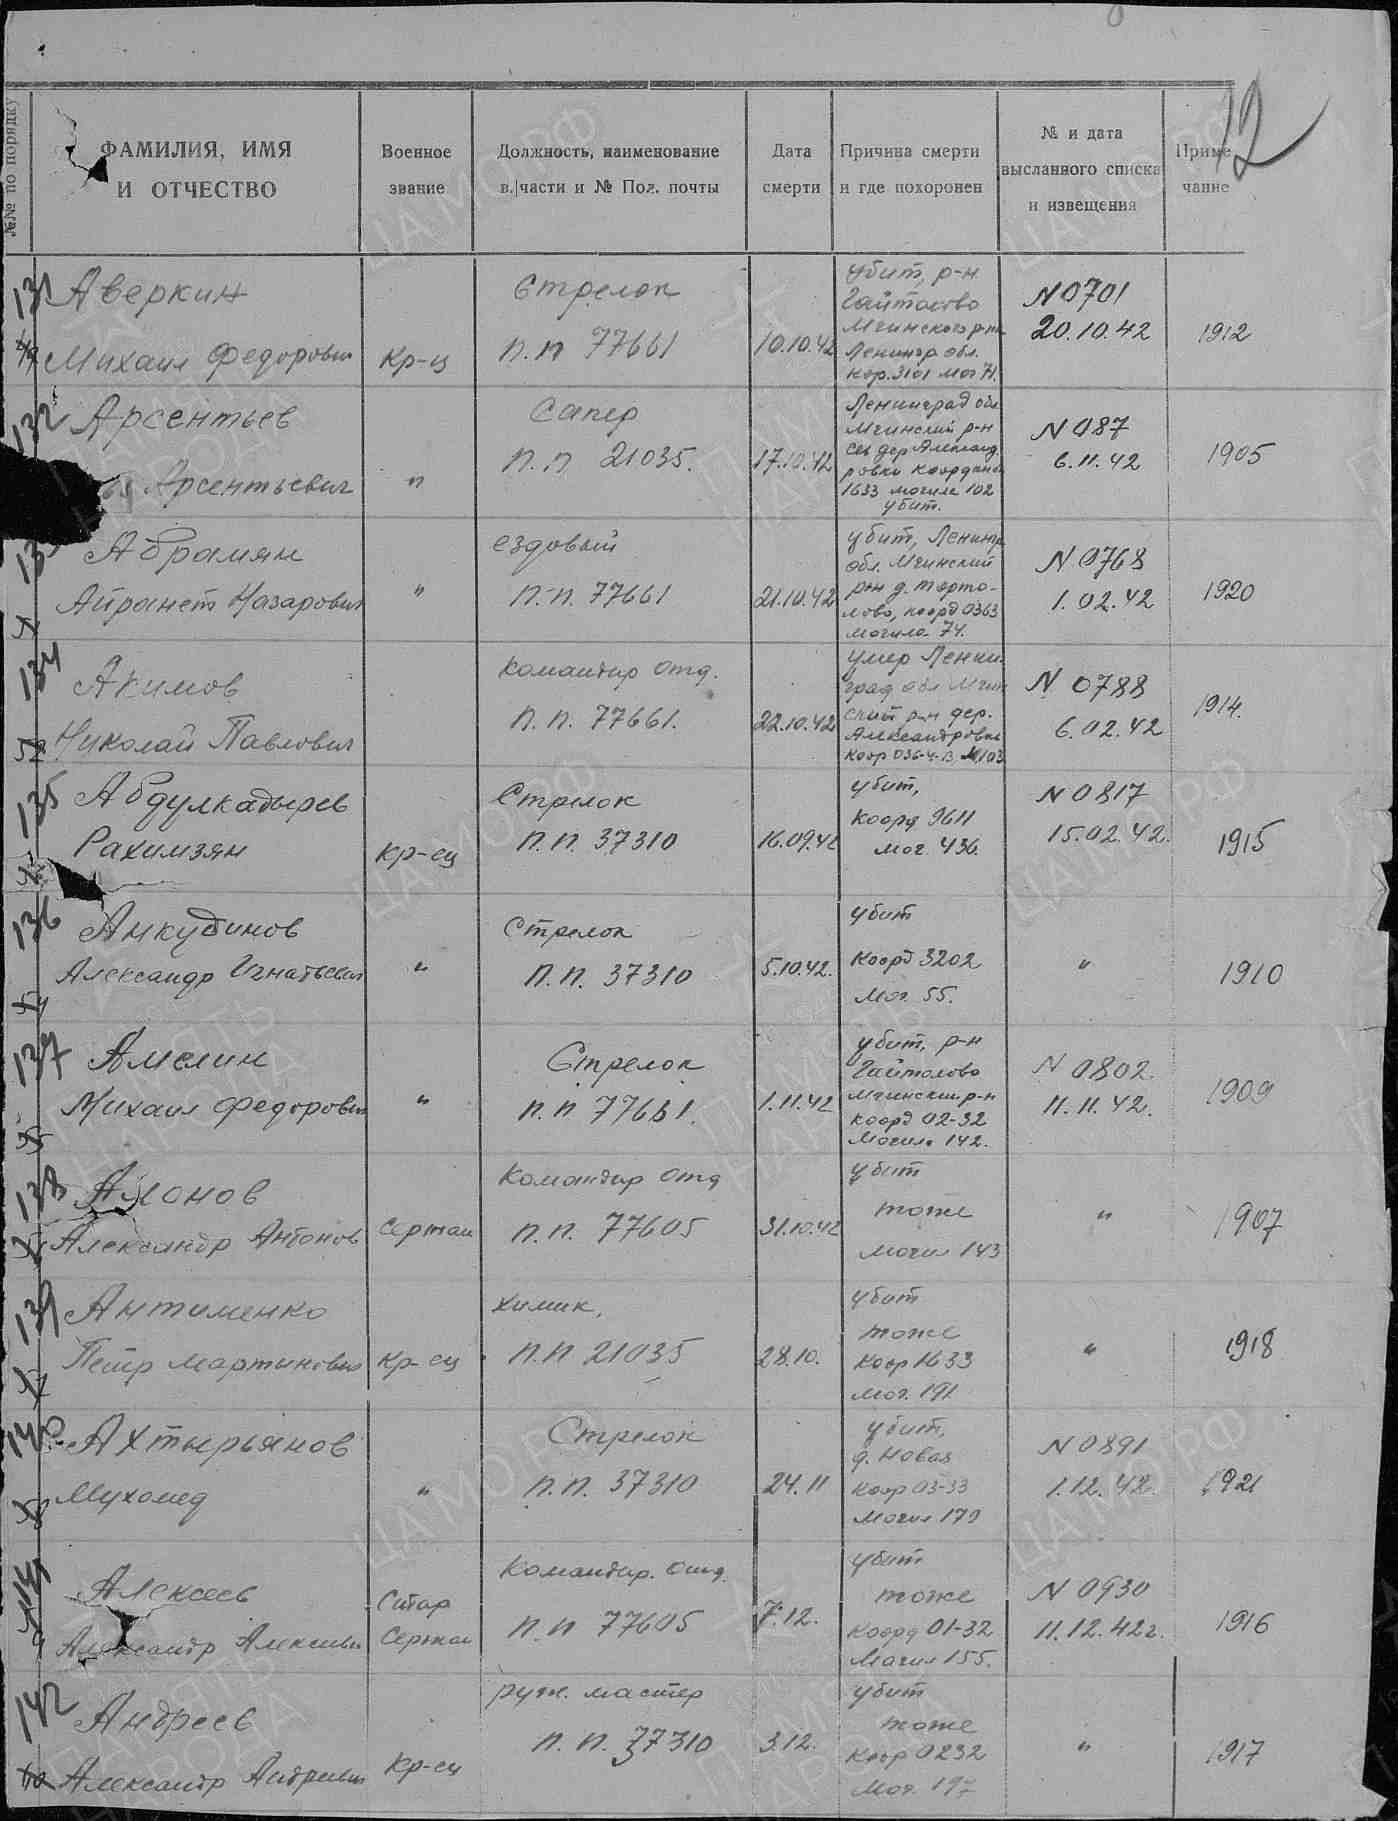 12
№№ по порядку
ФАМИЛИЯ, ИМЯ
И ОТЧЕСТВО
Военное
звание
Должность, наименование
в. части и № Пол. почты
Дата
смерти
Причина смерти
и где похоронен
№ и дата
высланного списка
и извещения
Приме
чание
131
Аверкин
Михаил Федорович
Кр-ц
Стрелок
п.п 77661
10.10.42
убит, р-н
Гайтолово
Мгинского р-на
Ленингр. обл.
кор. 3101 мог 71.
N 0701
20.10.42
1912
132
Арсентьев
Арсентьевич
"
Сапер
п.п 21035.
17.10.42
Ленинград обл
Мгинский р-н
дер Александ
ровка Координ
1633 могила 102
убит.
N 087
6.11.42
1905
Абрамян
Айранет Назарович
"
ездовый
п.п. 77661
21.10.42
убит, Ленингр
обл. Мгинский
р-н д. Торто-
лово, коорд 0363
могила 74.
N 0768
1.02.42
1920
134
Акимов
52 Николай Павлович
командир отд.
п.п. 77661.
22.10.42
умер Ленин
град обл Мгин
ский р-н дер.
Александровка
N 0788
6.02.42
1914.
135
Абдулкадырев
Рахимзян
кр-ец
Стрелок
п.п. 37310
16.09.42
убит,
коорд 9611
мог. 436.
N 0817
15.02.42.
1915
136
Анкудинов
Александр Игнатьевич
"
Стрелок
п.п. 37310
5.10.42.
убит
коорд 3202
мог. 55.
"
1910
137
Амелин
Михаил Федорович
"
Стрелок
п.п. 77661.
1.11.42
убит, р-н
Гайтолово
Мгинский р-н
коорд 02-32
Могила 142.
N 0802
11.11.42.
1909
138
Александр Антонов
Сержан
Командир отд
п.п. 77605
31.10.42
убит
тоже
могил 143
"
1907
139
Антименко
Петр Мартынович
Кр-ец
химик,
п.п 21035
28.10.
убит
тоже
коор 1633
мог. 191
"
1918
140
Ахтырьянов
Мухомед
"
Стрелок
п.п. 37310
24.11
убит,
д. Новая
коор 03-33
Могил 179
N 0891
1.12.42.
1921
141
Алексеев
Александр Алексеевич
Сержан
Командир. отд.
п.п 77605
7.12.
убит
тоже
коорд 01-32
Могил 155.
N 0930
11.12.42г.
1916
142
Андреев
Александр
Кр-ец
руж. мастер
п.п. 37310
3.12.
убит
тоже
коор 0232
"
1917